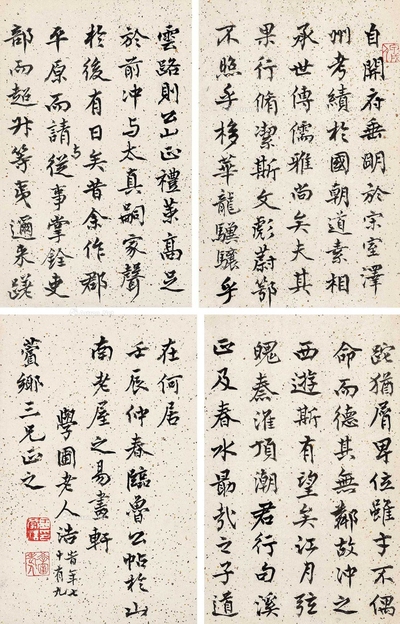 自開府垂明於宗室澤
州考績於國朝道素相
承世傳儒雅尚矣夫其
果行脩潔斯文彪蔚鄂
不照乎移華龍驥驤乎
雲路則公山正禮策高足
於前冲与太真嗣家聲
於後有日矣昔余作郡
平原而請与從事掌銓吏
部而超升等夷邇來蹉
跎猶屑卑位雖才不偶
命而德其無鄰故冲之
西遊斯有望矣江月弦
魄秦淮頂潮君行句溪
正及春水勗哉之子道
在何居
壬辰仲春臨魯公帖於山
南老屋之易畫軒
學圃老人浩
時年七
十有九
鄉三兄正之